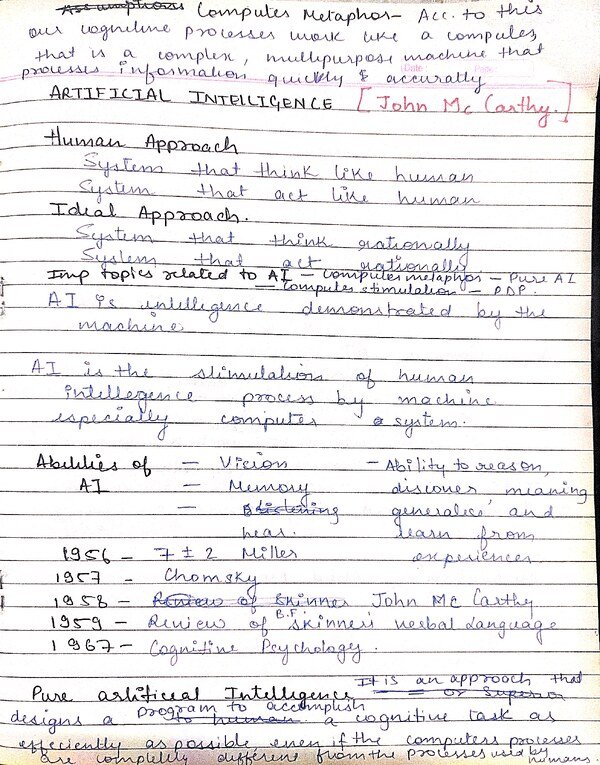 Assumptions Computer Metaphor - Acc. to this
our cognitive processes work like a computer
that is a complex, multipurpose machine that
processes information quickly & accurately
ARTIFICIAL INTELLIGENCE [John Mc Carthy.]
Human Approach
System that think like human
System that act like human
Ideal Approach.
System that think rationally
System that act rationally
Imp topics related to AI - computer metaphor - Pure AI
- computer stimulation - PDP.
AI is intelligence demonstrated by the
machine
AI is the stimulation of human
intellegence process by machine
especially computer a system.
Abilities of - Vision - Ability to reason,
AI - Memory discover, meaning
- listening generalies, and
hear. learn from
experiences
1956 - 7 ± 2 Miller
1957 - Chomsky
1958 - Review of Skinner John Mc Carthy
1959 - Review of B.F. Skinner's verbal Language
1967 - Cognitive Psychology.
Pure artificial Intelligence It is an approach that
= or Superior
designs a program to accomplish
to human a cognitive task as
effeciently as possible even if the computers processes
are completly different from the processes used by
humans.